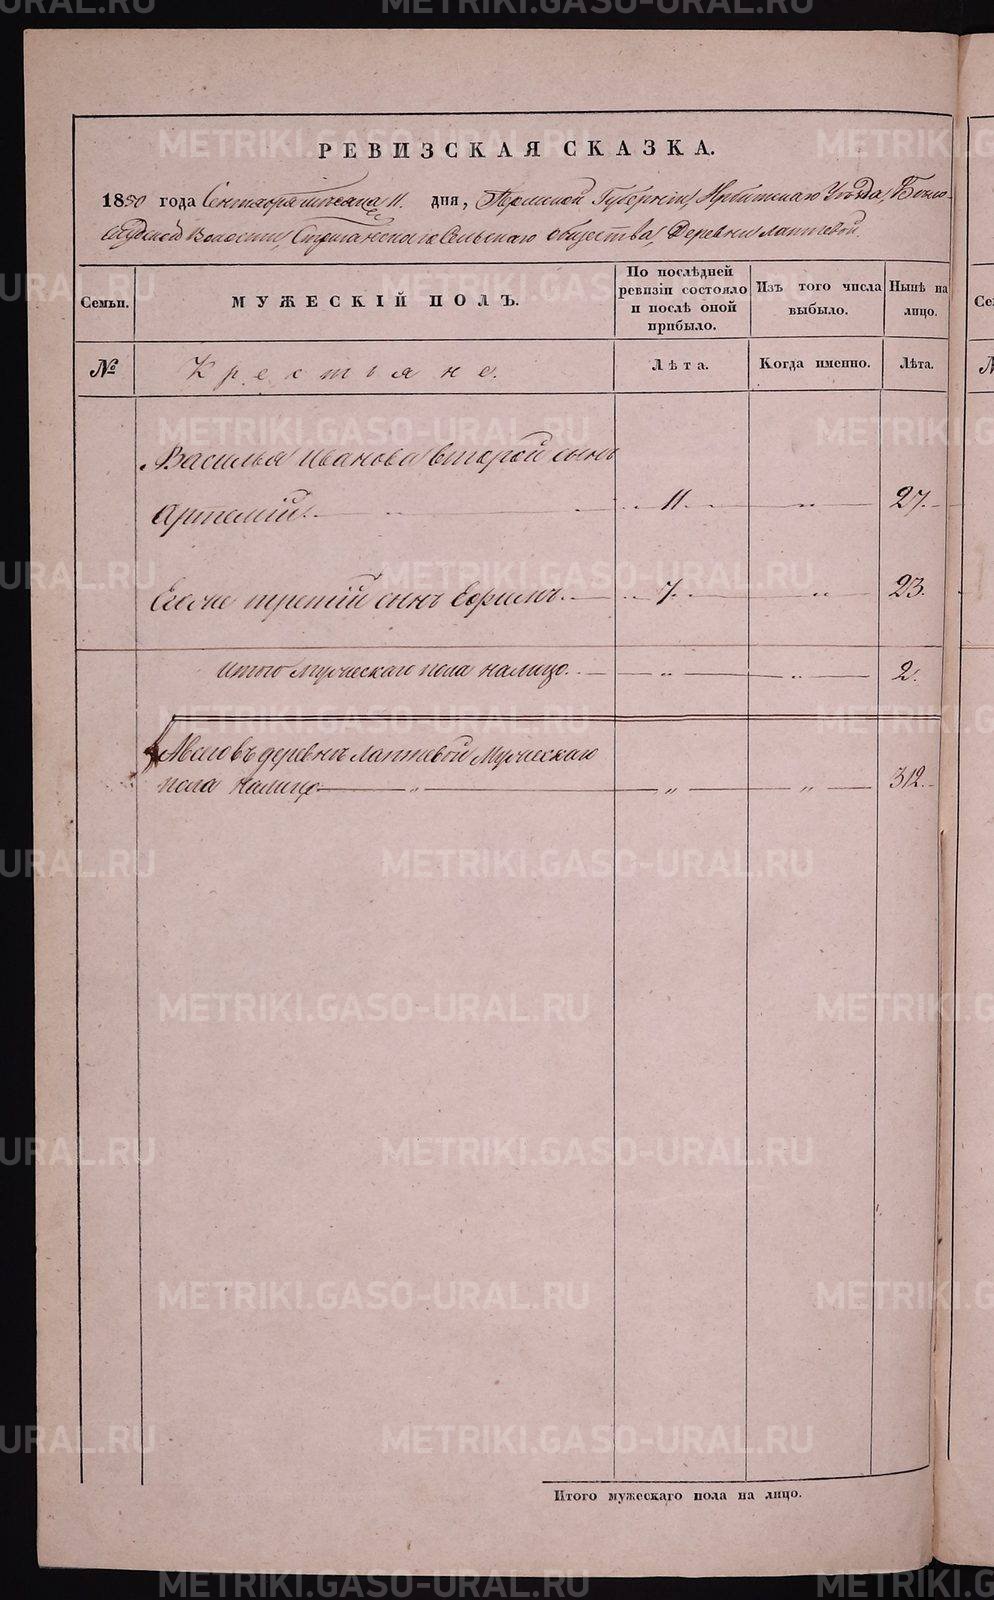 РЕВИЗСКАЯ СКАЗКА.
1850 года Сентября месяца 11. дня, Пермской Губерніи, Ирбитскаго Уѣзда,
Волости, Стриганскаго Сельскаго общества, Деревни Лаптевой.
Семьи. МУЖЕСКІЙ ПОЛЪ. По послѣдней ревизіи состояло и послѣ оной прибыло. Изъ того числа выбыло. Нынѣ на лицо.
№ Крестьяне. Лѣта. Когда именно. Лѣта.
Василья Иванова второй сынъ
Артемій. 11. " 27.
Его же третій сынъ Ефимъ. 7. " 23.
Итого мужескаго пола налицо. " " 2.
А всего въ деревнѣ Лаптевой мужескаго
пола налицо " " " 312.
Итого мужескаго пола на лицо.
METRIKI.GASO-URAL.RU